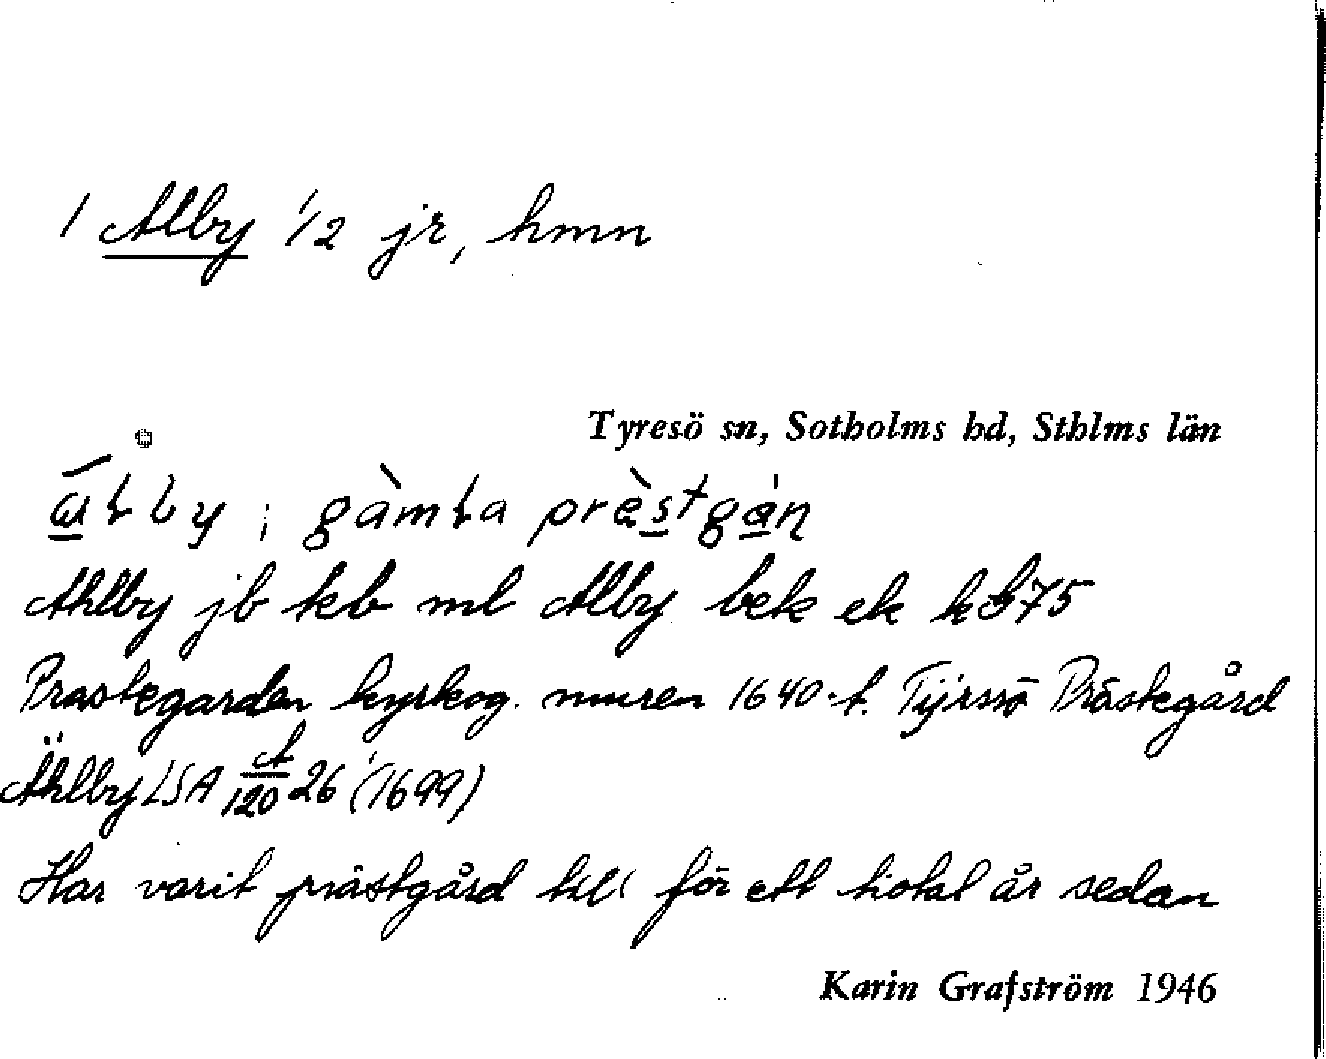 1 Alby 1/2 jr, hmn
Tyresö sn, Sotholms hd, Sthlms län
gàmla prèstgán
Ahlby jb kb ml Alby bek ek kb 75
Prastegarden kyrkog. muren 1640-t. Tÿrssö Prästegård
Ählby LSA A/120 26 (1699)
Har varit prästgård till för ett tiotal år sedan
Karin Grafström 1946